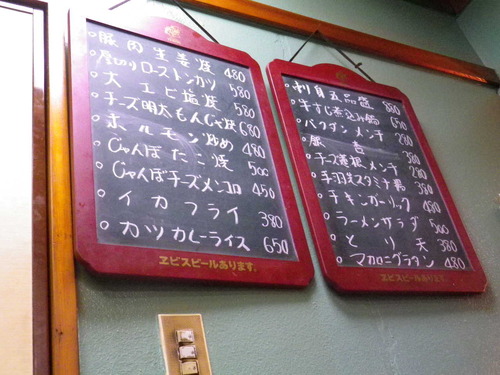 豚肉生姜焼 480
厚切りローストンカツ 580
大エビ塩焼 580
チーズ明太もんじゃ焼 680
ホルモン炒め 480
じゃんぼたこ焼 500
じゃんぼチーズメンコロ 450
イカフライ 380
カツカレーライス 650
ヱビスビールあります。
刺身五品盛 880
牛すじ煮込み鍋 650
バクダンメンチ 280
豚
チーズ養根メンチ 280
手羽スタミナ 380
チキンガーリック 480
ラーメンサラダ 500
とり天 380
マカロニグラタン 480
ヱビスビールあります。